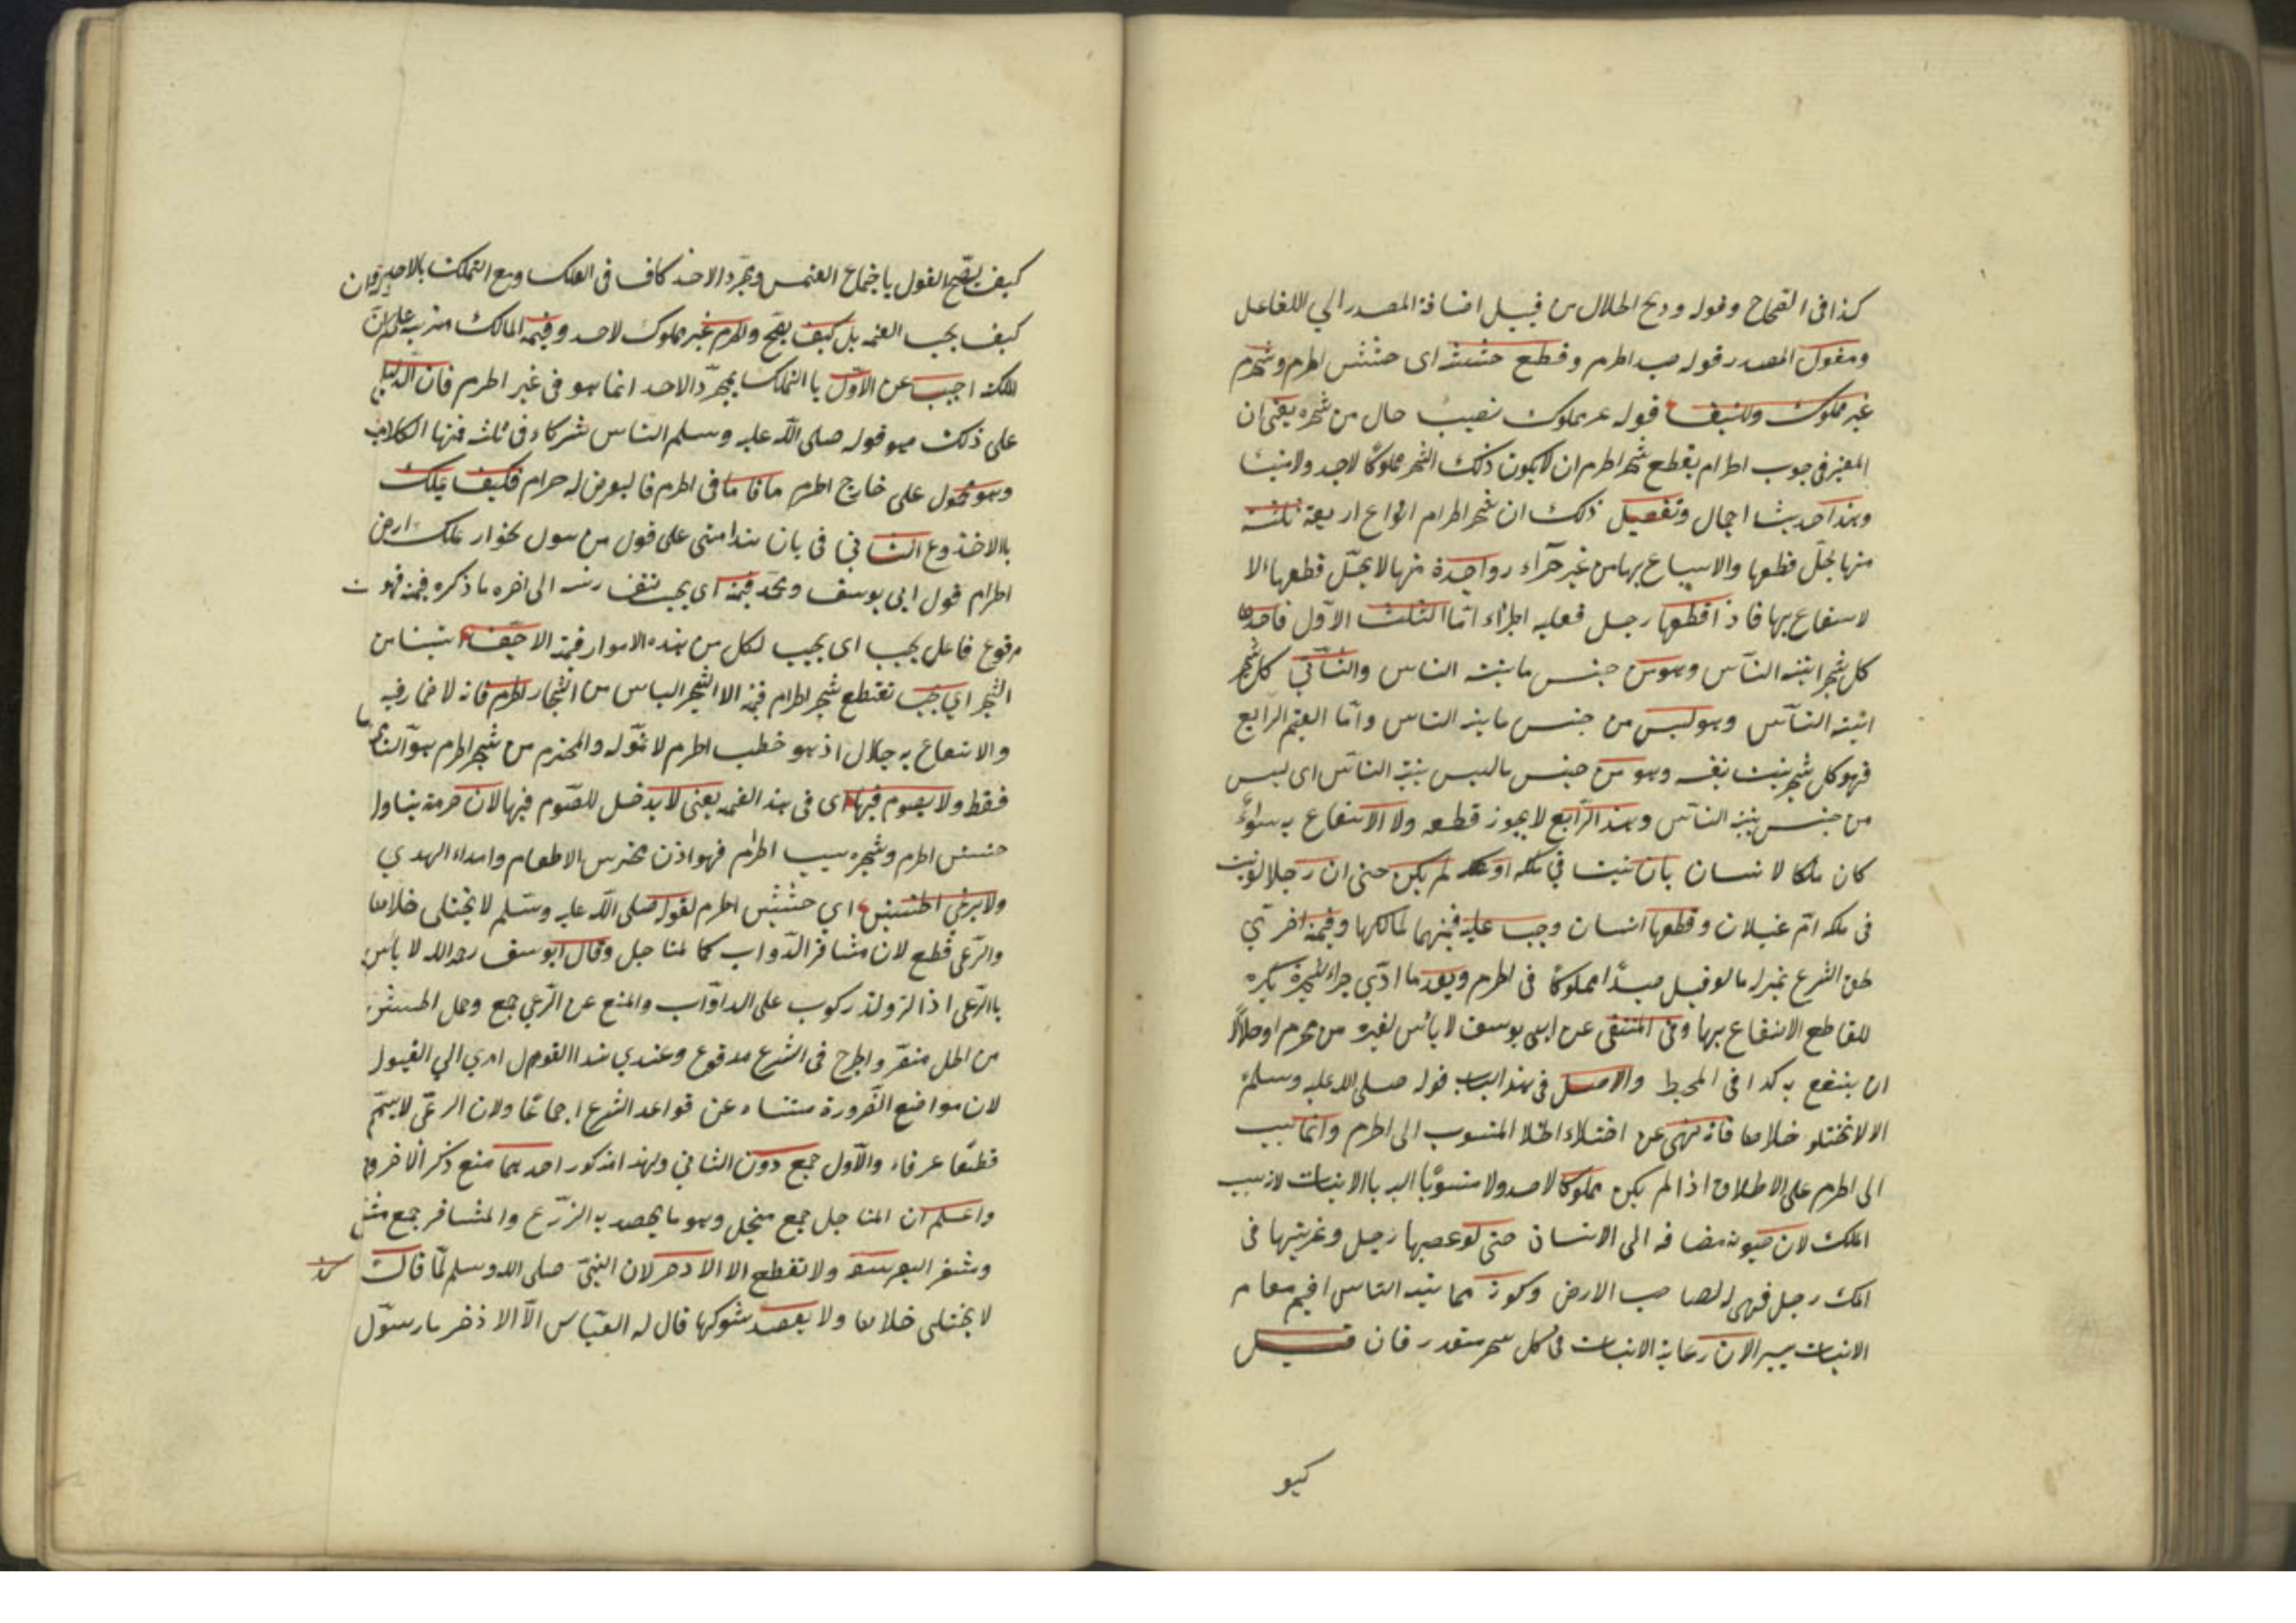 كذا فى الصحاح وقوله وذبح الحلال من قبيل اضافة المصدر الي الفاعل
ومفعول المصدر قوله صيد الحرم وقطع حشيشه اى حشيش الحرم وشجره
غير مملوك ولانبت قوله غير مملوك نصب حال من شجره يعنى ان
المعتبر فى وجوب الحرام بقطع شجر الحرم ان لا يكون ذلك الشجر مملوكا لاحد ولا منبتا
وهذا حديث اجمال وتفصيل ذلك ان شجر الحرام انواع اربعة ثلثة
منها يحل قطعها والانتفاع بها من غير جزاء وواحدة منها لا يحل قطعها ولا
الانتفاع بها فاذا قطعها رجل فعليه الجزاء اما الثلث الاول فاحدها
كل شجر انبته الناس وهو من جنس ما ينبته الناس والثاني كل شجر
انبته الناس وهو ليس من جنس ما ينبته الناس واما القسم الرابع
فهو كل شجر ينبت بنفسه وهو من جنس ما ليس ينبته الناس اى ليس
من جنس ينبته الناس وهذا الرابع لا يجوز قطعه ولا الانتفاع به سواء
كان ملكا لانسان بان نبت في ملكه او لم يكن حتى ان رجلا لو نبت
فى ملكه ام غيلان وقطعها انسان وجب عليه قيمتها لمالكها وقيمة اخرى
لحق الشرع بمنزلة ما لو قتل صيدا مملوكا فى الحرم وبعد ما ادى جزاء الشجرة يكره
للقاطع الانتفاع بها وفى المنتقى عن ابى يوسف لا باس لغيره من محرم او حلال
ان ينتفع به كذا فى المحيط والاصل فى هذا الباب قوله صلى الله عليه وسلم
الا لا تختلو خلاها فانه نهى عن اختلاء الخلا المنسوب الى الحرم وانما ينسب
الى الحرم على الاطلاق اذا لم يكن مملوكا لاحد ولا منسوبا اليه بالانبات لانه ينسب
الملك لان مضافه الى الانسان حتى لو غصبها رجل وغرسها فى
ملك رجل فهى لصاحب الارض وكونه مما ينبته الناس اقيم مقام
الانبات تيسيرا لان رعاية الانبات فى كل شجر متعذر فان قيل
كيف
كيف يصح القول باجتماع القيمتين ومجرد الاخذ كاف فى الملك ومع التملك بالاخذ وان
كيف يجب القيمة بل كيف يصح والحرم غير مملوك لاحد وقيمة المالك مترتبة على ان
الملك اجيب عن الاول بان التملك بمجرد الاخذ انما هو فى غير الحرم فان الدليل
على ذلك هو قوله صلى الله عليه وسلم الناس شركاء فى ثلثه منها الكلاء
وهو محمول على خارج الحرم فاما ما فى الحرم فالتعرض له حرام فكيف يملك
بالاخذ وعن الثانى فى بان هذا مبنى على قول من يقول بجواز تملك ارض
الحرام قول ابى يوسف ومحمد قيمته اى يجب الى اخره ما ذكره قيمته فهو
مرفوع فاعل يجب اى يجب لكل من هذه الامور قيمته الا ما جف استثناء من
الشجر اي يجب بقطع شجر الحرام قيمته الا الشجر اليابس من اشجار الحرم فانه لا ضمان فيه
والانتفاع به حلال اذ هو حطب الحرم لا نموله والمحرم من شجر الحرم هو النامي
فقط ولا يصوم فيها اى فى هذه القيمة يعنى لا يدخل للصوم فيها لان حرمة تناول
حشيش الحرم وشجره بسبب الحرم فهو اذن من جنس الاطعام واهداء الهدي
ولا يرعى الحشيش اي حشيش الحرم لقوله صلى الله عليه وسلم لا يختلى خلاها
والرعى قطع لان مشافر الدواب كالمناجل وقال ابو يوسف رحمه الله لا باس
بالرعى اذ الركوب على الدواب والمنع عن الرعي وحمل الحشيش
من الحل متعذر والحرج فى الشرع مدفوع وعندي هذا القول احرى الي القبول
لان مواضع الضرورة مستثناه عن قواعد الشرع اجماعا ولان الرعى لا يسمى
قطعا عرفا والاول جمع دون الثاني ولهذا ذكور احدهما منع ذكر الاخر
واعلم ان المناجل جمع منجل وهو ما يحصد به الزرع والمشافر جمع مشفر
ومشفر البعير شفته ولا تقطع الا الاذخر لان النبى صلى الله وسلم لما قال
لا يختلى خلاها ولا يعضد شوكها قال له العباس الا الاذخر يا رسول